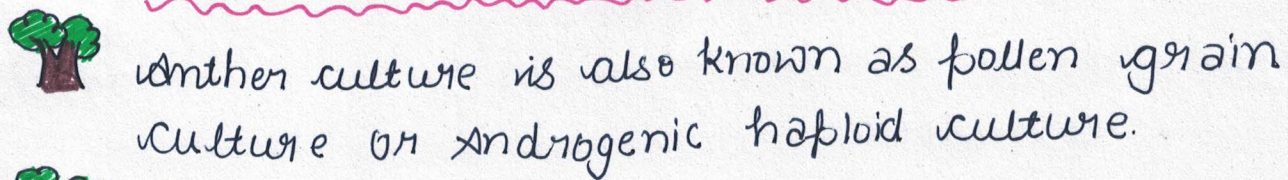 Anther culture is also known as pollen grain
culture or Androgenic haploid culture.